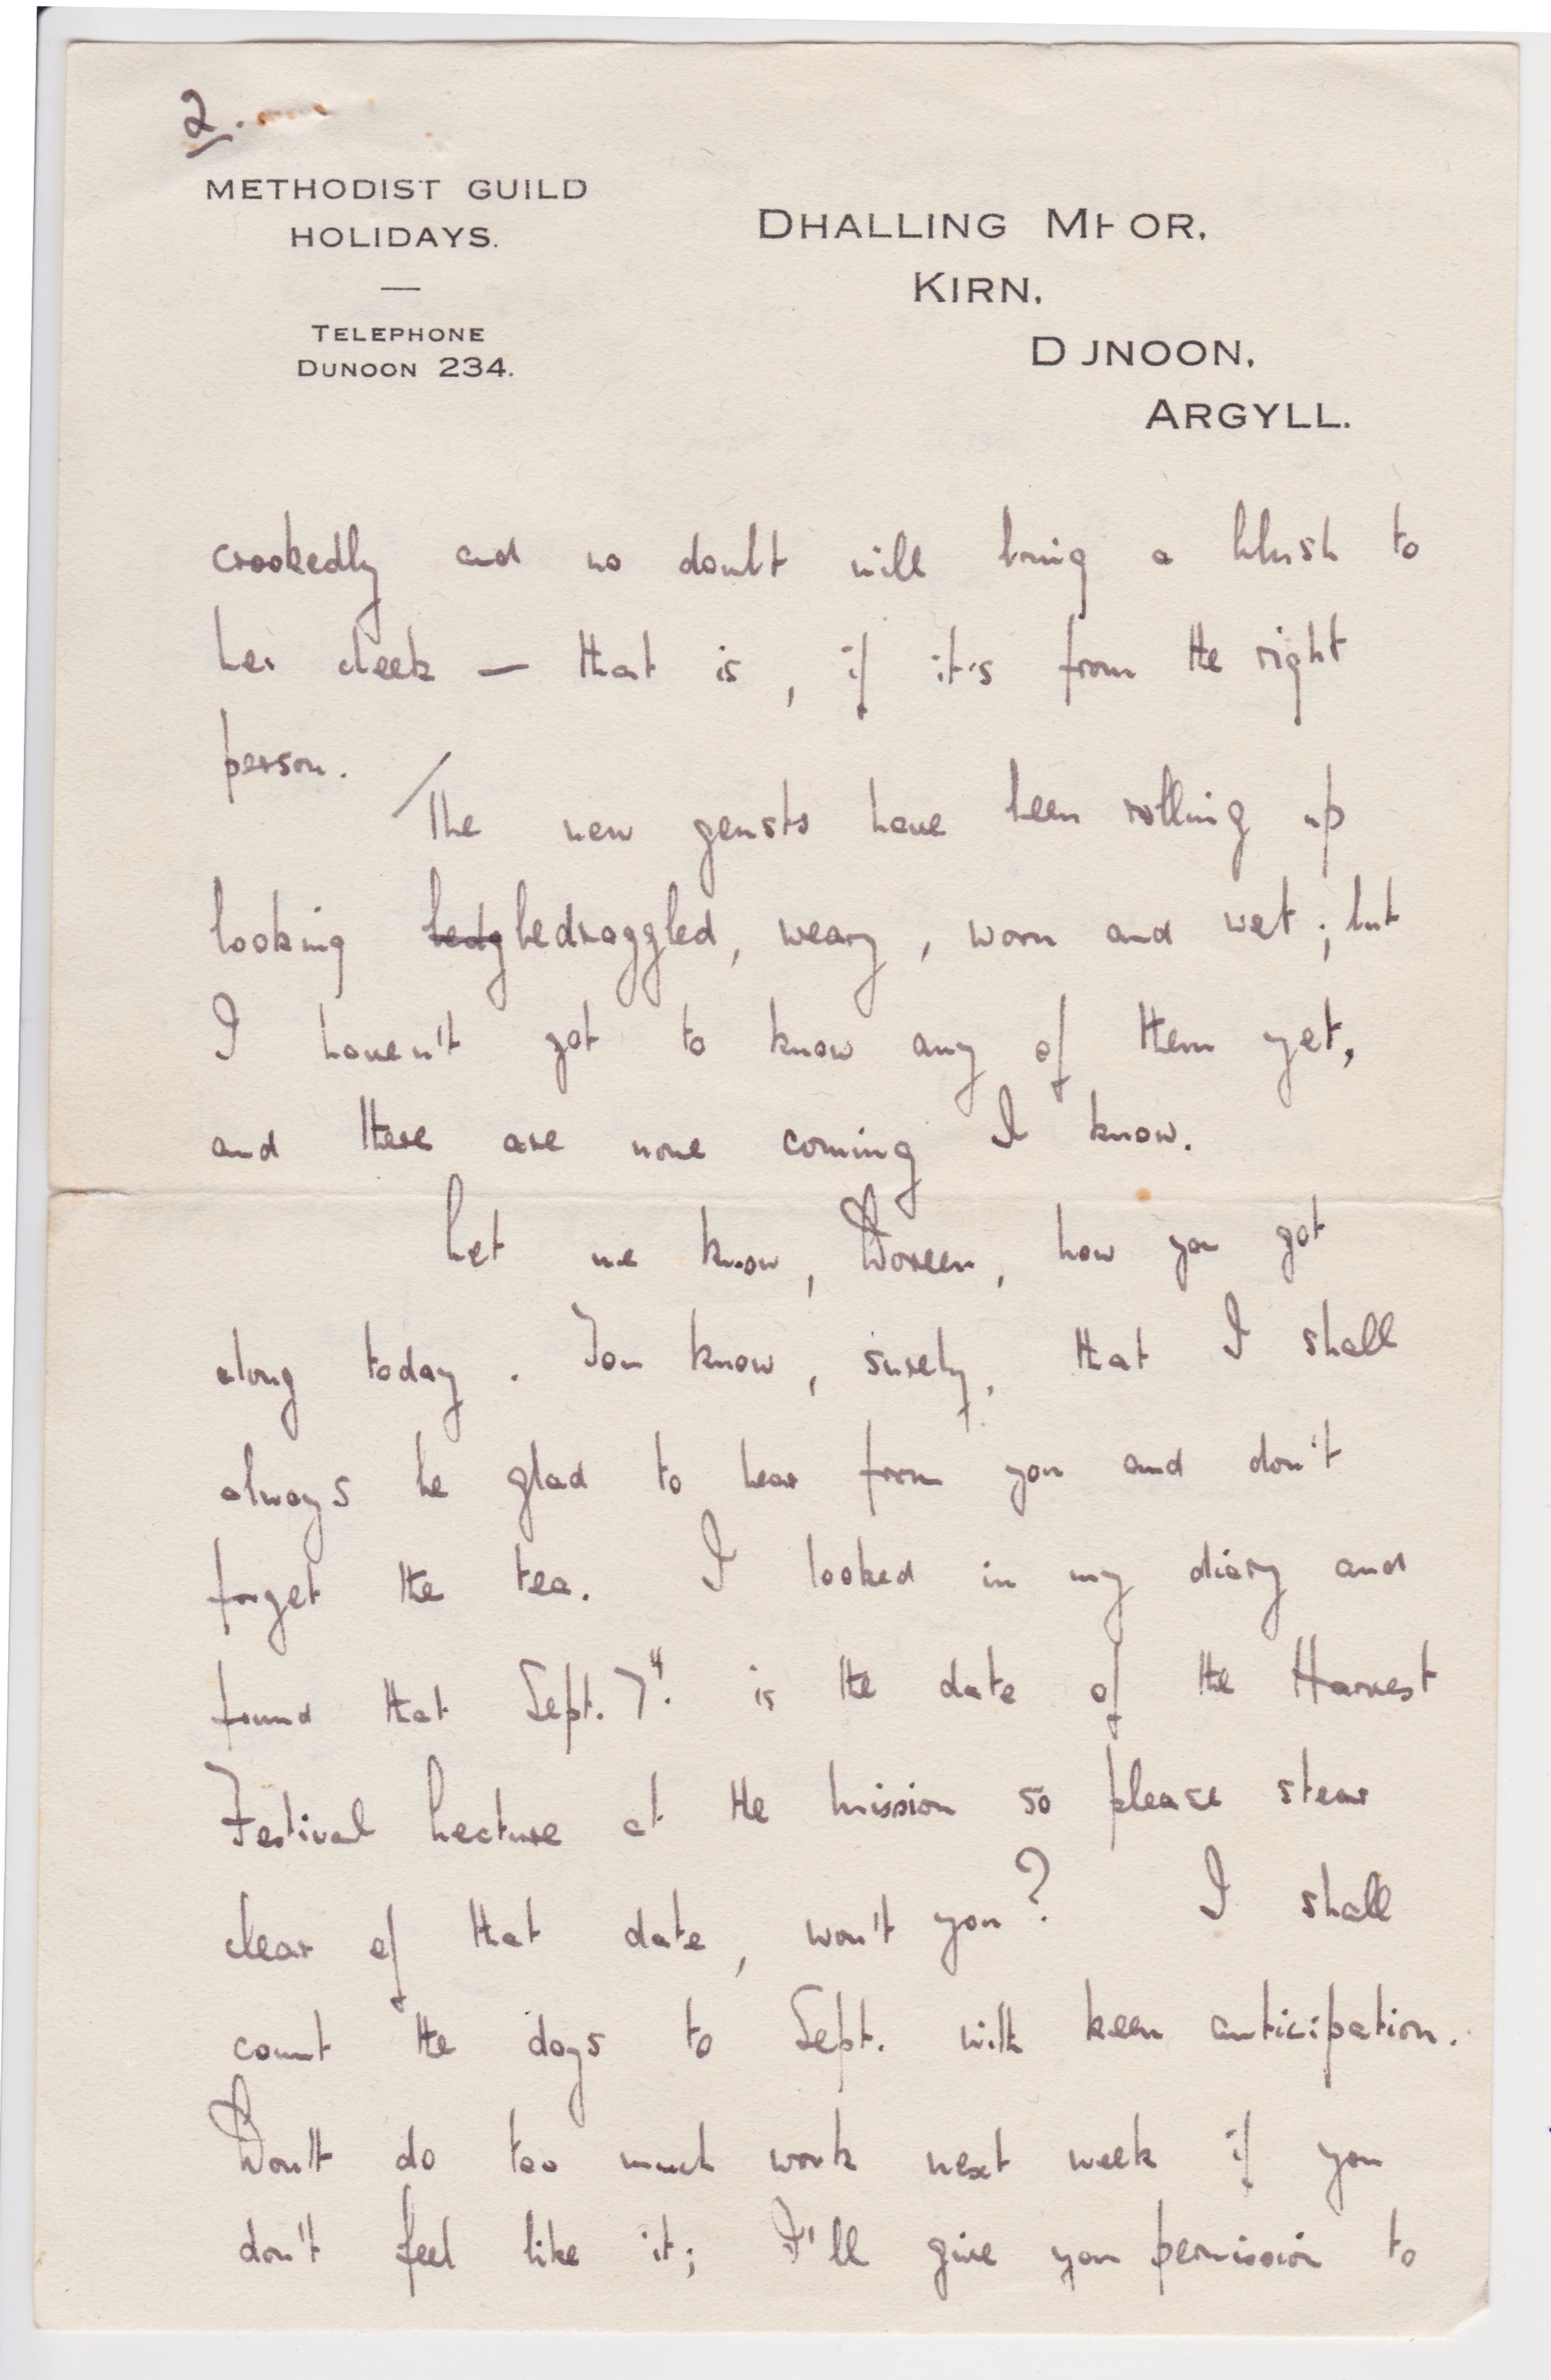 2.
METHODIST GUILD
HOLIDAYS.
—
TELEPHONE
DUNOON 234.
DHALLING MHOR,
KIRN,
DUNOON,
ARGYLL.
crookedly and no doubt will bring a blush to
her cheek — that is, if it's from the right
person.
/The new geusts have been rolling up
looking bedg bedraggled, weary, worn and wet; but
I haven't got to know any of them yet,
and there are none coming I know.
Let me know, Doreen, how you got
along today. You know, surely, that I shall
always be glad to hear from you and don't
forget the tea. I looked in my diary and
found that Sept. 7th. is the date of the Harvest
Festival Lecture at the Mission so please stear
clear of that date, won't you? I shall
count the days to Sept. with keen anticipation.
Don't do too much work next week if you
don't feel like it; I'll give you permission to